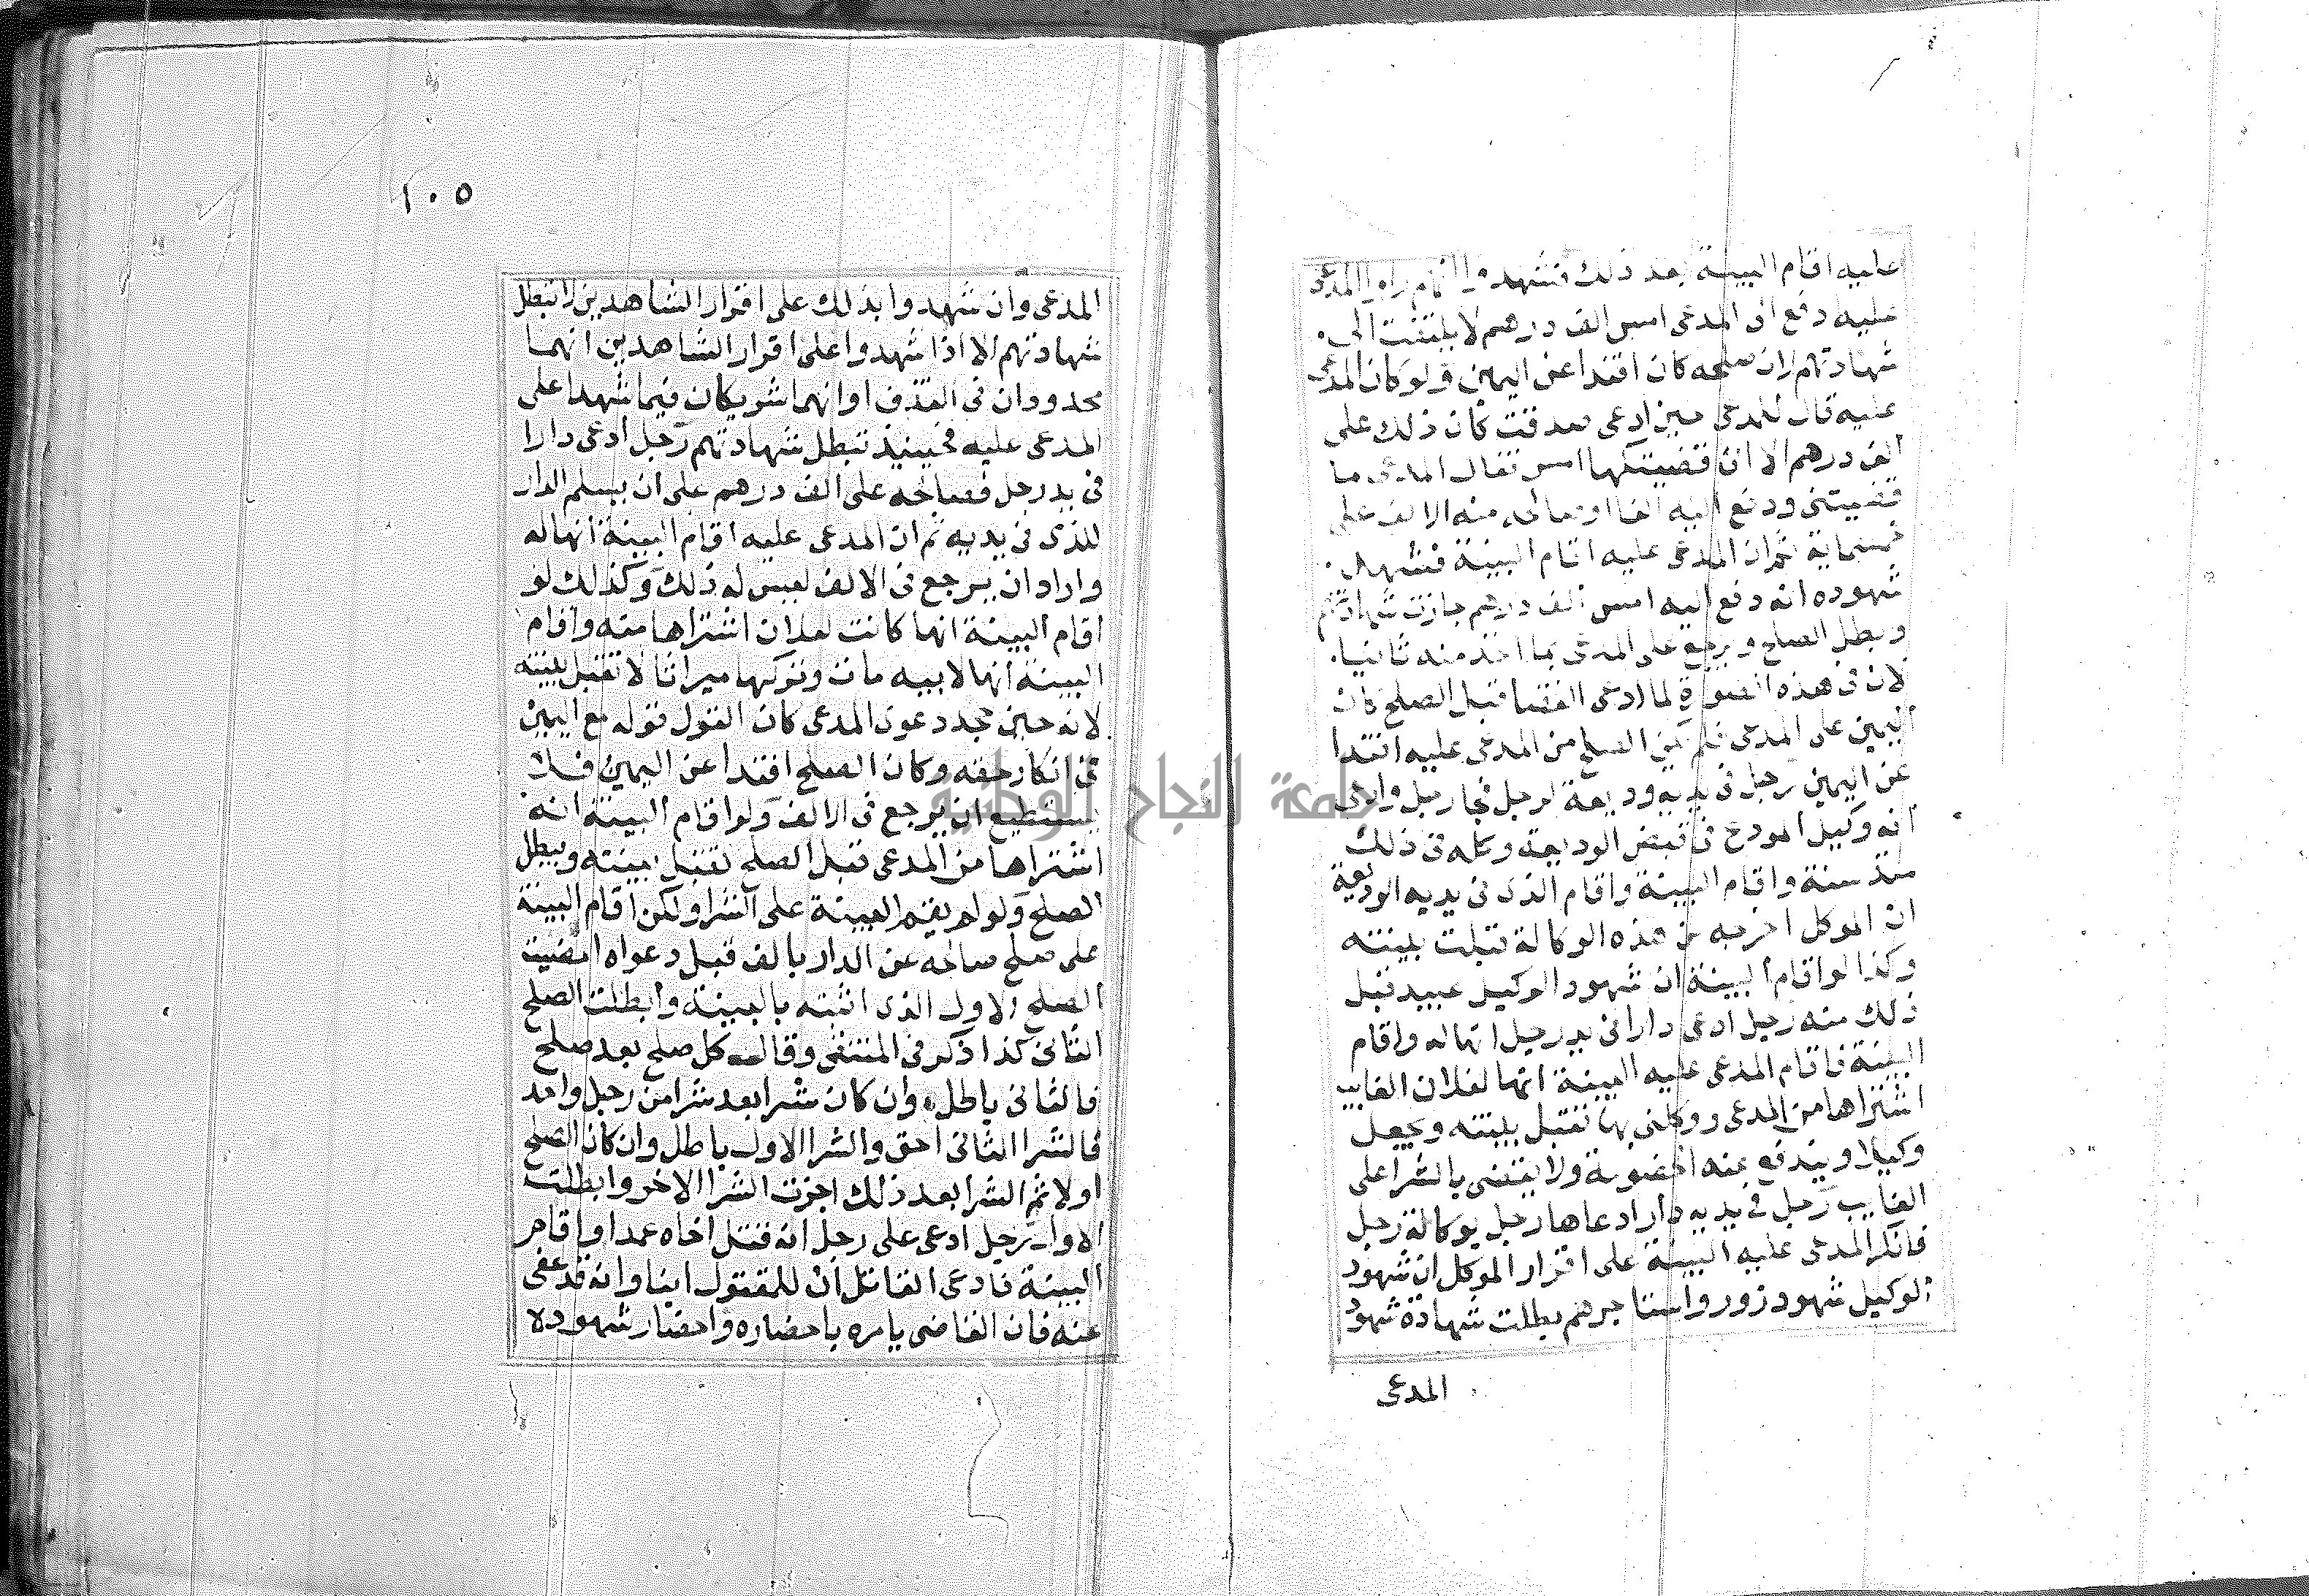 عليه اقام البينة بعد ذلك فشهد المدعى
عليه دفع الى المدعى امس الف درهم لا يلتفت الى
شهادتهم لان صلحه كان افتدا عن اليمين ولو كان المدعى
عليه قال للمدعى حين ادعى صدقت كان ذلك على
الف درهم الا انى قضيتكها امس فقال المدعى ما
قضيتنى ودفع اليه الفا او صالحه منه الالف على
خمسماية ثم ان المدعى عليه اقام البينة فشهد
شهوده انه دفع اليه امس الف درهم جازت شهادتهم
وبطل الصلح ويرجع على المدعى بما اخذ منه ثانيا
لان فى هذه الصورة لما ادعى القضا قبل الصلح كان
اليمين على المدعى فلم يكن الصلح من المدعى عليه افتدا
عن اليمين رجل فى يديه وديعة لرجل فجا رجل وادعى
انه وكيل المودع فى قبض الوديعة وكله فى ذلك
منذ سنة واقام البينة واقام الذى فى يديه الوديعة
ان الموكل اخرجه من هذه الوكالة قبلت بينته
وكذا لو اقام البينة ان شهود الوكيل عبيد تقبل
ذلك منه رجل ادعى دارا فى يد رجل انها له واقام
البينة فاقام المدعى عليه البينة انها لفلان الغايب
اشتراها من المدعى ووكلنى بها تقبل بينته ويجعل
وكيلا ويندفع عنه الخصومة ولا يقضى بالشرا على
الغايب رجل فى يديه دار ادعاها رجل بوكالة رجل
فانكر المدعى عليه البينة على اقرار الموكل ان شهود
الوكيل شهود زور واستاجرهم بطلت شهادة شهود
المدعى
١٠٥
المدعى وان شهدوا بذلك على اقرار الشاهدين لا تبطل
شهادتهم الا اذا شهدوا على اقرار الشاهدين انهما
محدودان فى القذف او انهما شريكان فيما شهدا على
المدعى عليه فحينيذ تبطل شهادتهم رجل ادعى دارا
فى يد رجل فصالحه على الف درهم على ان يسلم الدار
للذى فى يديه ثم ان المدعى عليه اقام البينة انها له
واراد ان يرجع فى الالف ليس له ذلك وكذلك لو
اقام البينة انها كانت لفلان اشتراها منه واقام
البينة انها لابيه مات وتركها ميراثا لا تقبل بينته
لانه حين جحد دعوى المدعى كان القول قوله مع اليمين
فى انكار حقه وكان الصلح افتدا عن اليمين فلا
يستطيع ان يرجع فى الالف ولو اقام البينة انه
اشتراها من المدعى قبل الصلح تقبل بينته ويبطل
الصلح ولو لم يقم البينة على الشرا ولكن اقام البينة
على صلح صالحه عن الدار بالف قبل دعواه امضيت
الصلح الاول الذى اثبته بالبينة وابطلت الصلح
الثانى كذا ذكر فى المنتقى وقال كل صلح بعد صلح
فالثانى باطل وان كان شرا بعد شرا من رجل واحد
فالشرا الثانى احق والشرا الاول باطل وان كان الصلح
اولا ثم الشرا بعد ذلك اجزت الشرا الاخر وابطلت
الاول رجل ادعى على رجل انه قتل اخاه عمدا واقام
البينة فادعى القاتل ان للمقتول ابنا وانه قد عفى
عنه فان القاضى يامره باحضاره واحضار شهوده لا
جامعة النجاح الوطنية